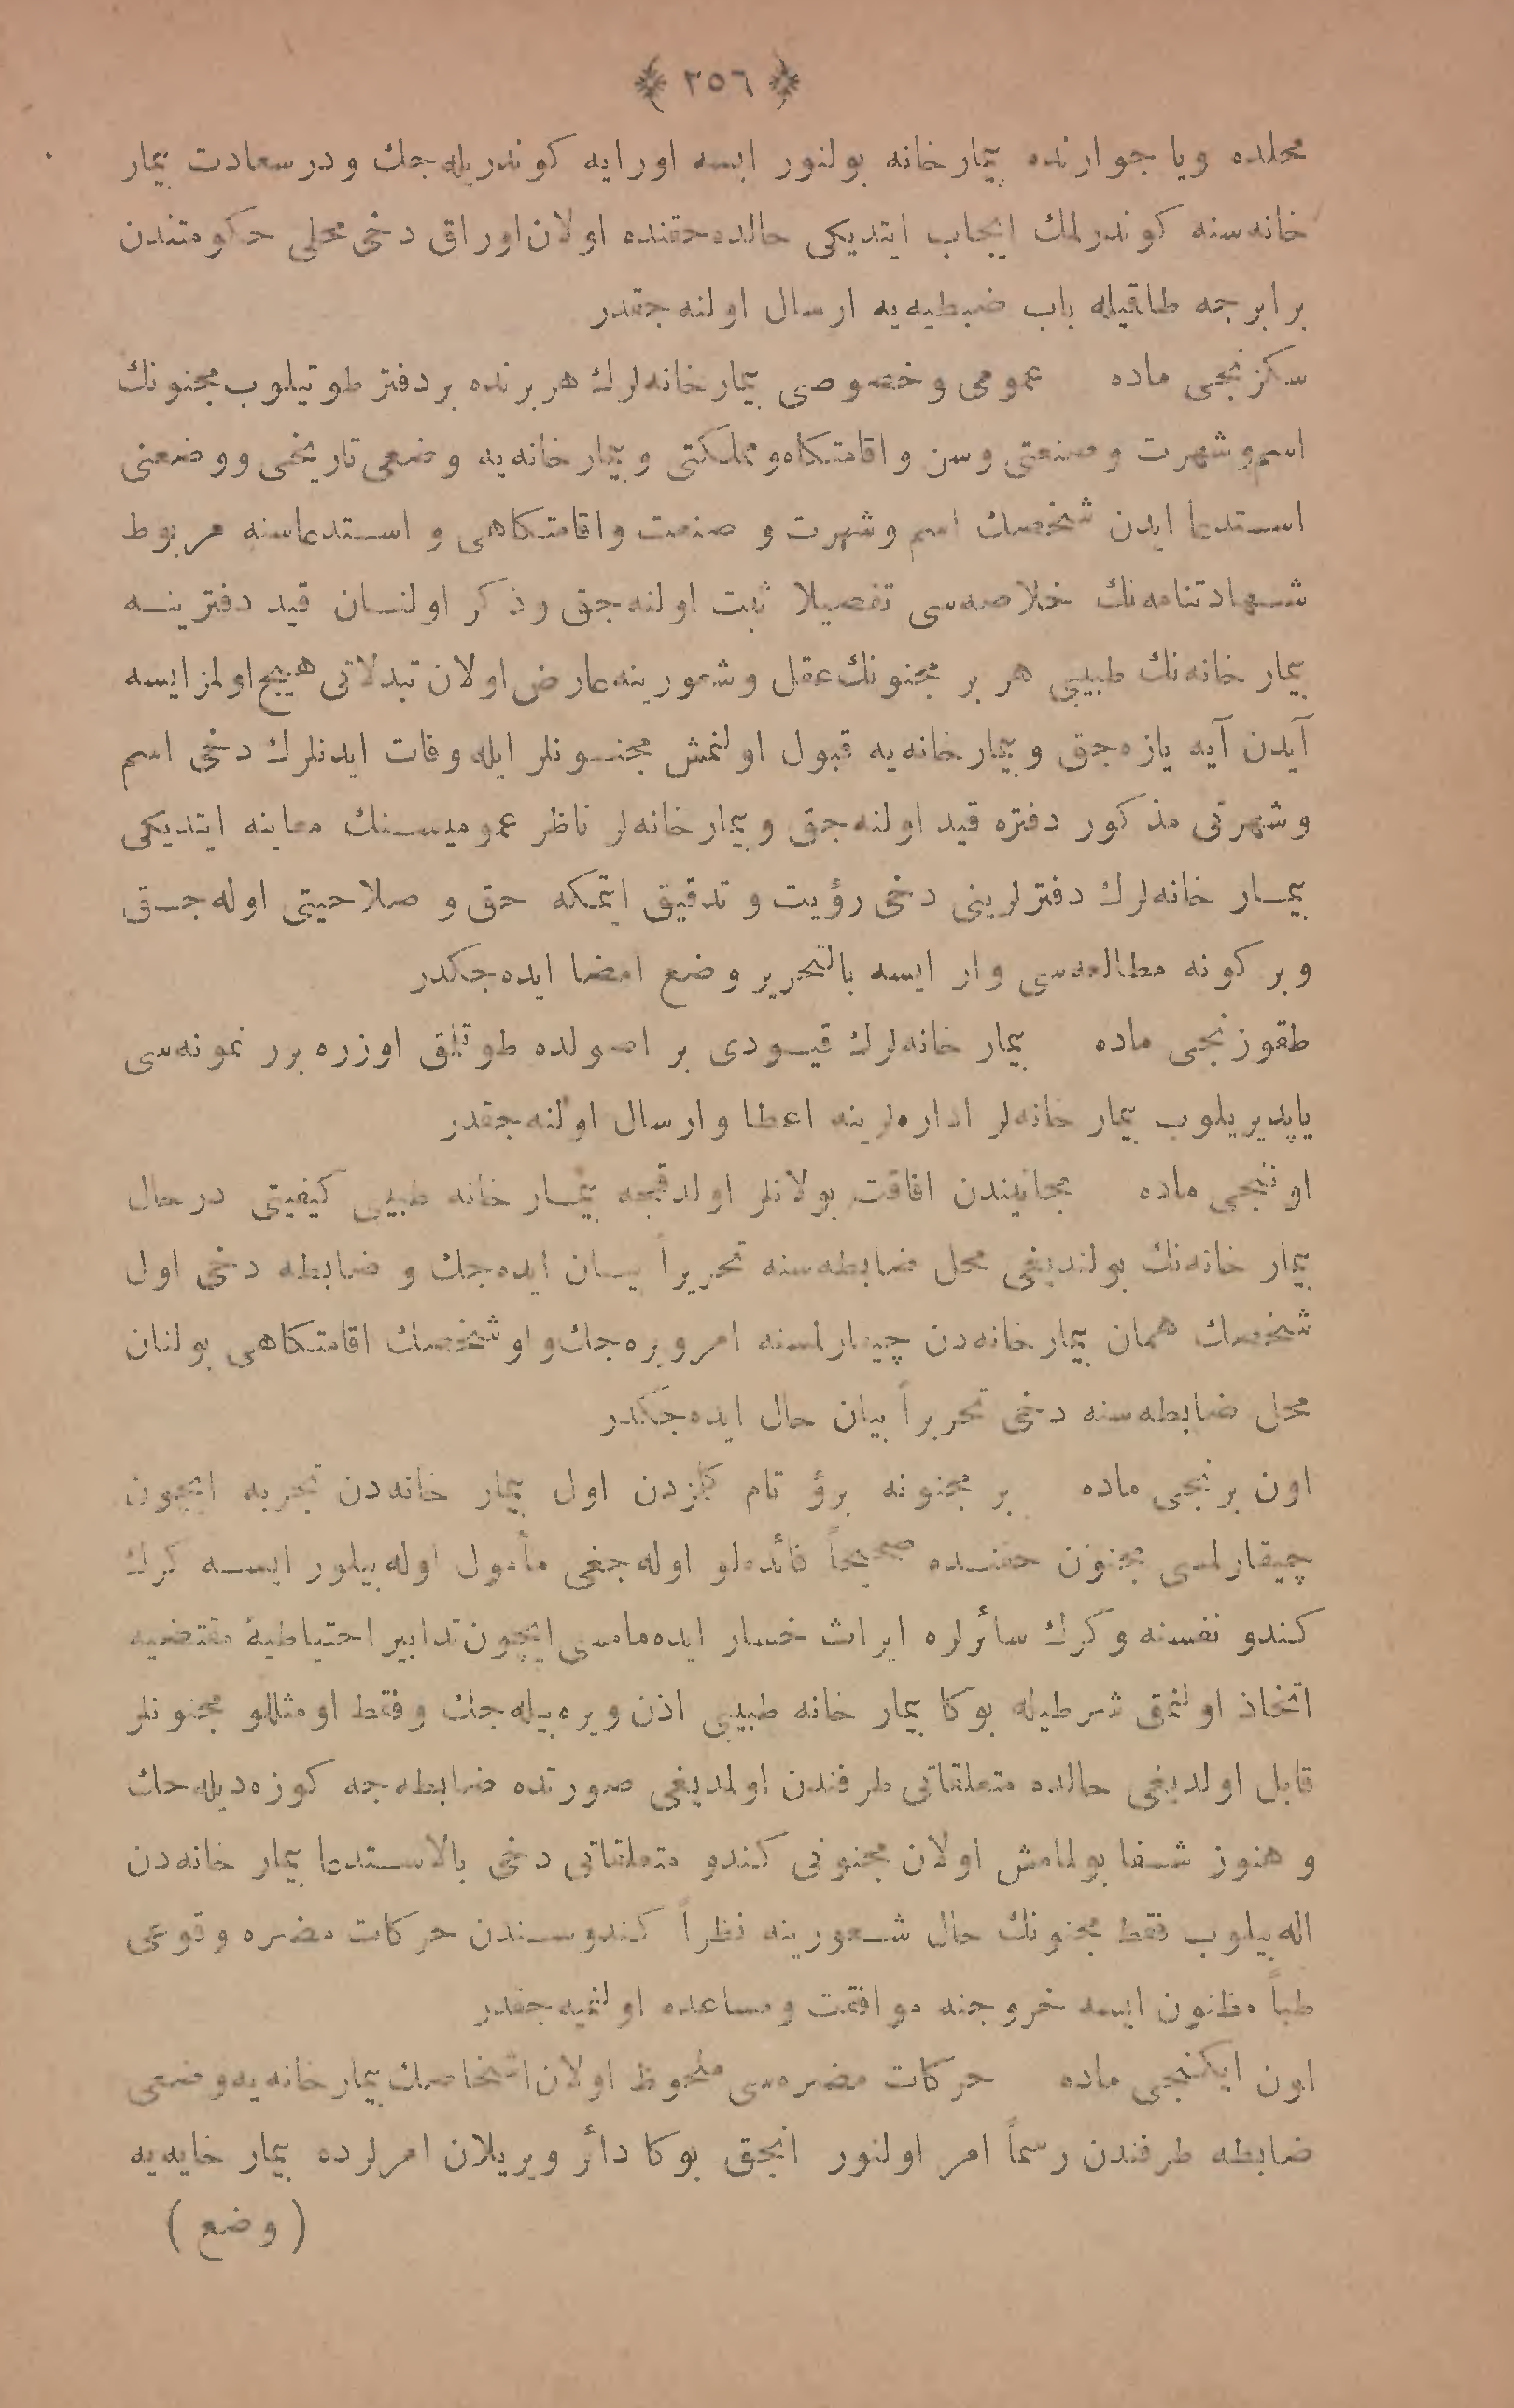 ﴿ ٢٥٦ ﴾
محلده ویا جوارنده بیمارخانه بولنور ایسه اورایه کوندریله‌جك ودرسعادت بیمار
خانه‌سنه کوندرلمك ایجاب ایتدیکی حالده حقنده اولان اوراق دخی محلی حکومتندن
برابرجه طاقیله باب ضبطیه‌یه ارسال اولنه‌جقدر
سکزنجی ماده عمومی وخصوصی بیمارخانه‌لرك هربرنده بردفتر طوتیلوب مجنونك
اسم وشهرت وصنعتی وسن واقامتکاه ومملکتی وبیمارخانه‌یه وضعی تاریخی ووضعنی
استدعا ایدن شخصك اسم وشهرت و صنعت واقامتکاهی و استدعاسنه مربوط
شهادتنامه‌نك خلاصه‌سی تفصیلا ثبت اولنه‌جق وذکر اولنان قید دفترینه
بیمار خانه‌نك طبیبی هر بر مجنونك عقل وشعورینه عارض اولان تبدلاتی هیچ اولمز ایسه
آیدن آیه یازه‌جق وبیمارخانه‌یه قبول اولنمش مجنونلر ایله وفات ایدنلرك دخی اسم
وشهرتی مذکور دفتره قید اولنه‌جق وبیمارخانه‌لر ناظر عمومیسنك معاینه ایتدیکی
بیمار خانه‌لرك دفترلرینی دخی رؤیت و تدقیق ایتمکه حق و صلاحیتی اوله‌جق
وبر کونه مطالعه‌سی وار ایسه بالتحریر وضع امضا ایده‌جکدر
طقوزنجی ماده بیمار خانه‌لرك قیودی بر اصولده طوتلق اوزره برر نمونه‌سی
یاپدیریلوب بیمار خانه‌لر اداره‌لرینه اعطا وارسال اولنه‌جقدر
اوننجی ماده مجانیندن افاقت بولانلر اولدقجه بیمار خانه طبیبی کیفیتی درحال
بیمار خانه‌نك بولندیغی محل ضابطه‌سنه تحریراً بیان ایده‌جك و ضابطه دخی اول
شخصك همان بیمارخانه‌دن چیقارلسنه امر ویره‌جك واوشخصك اقامتکاهی بولنان
محل ضابطه‌سنه دخی تحریراً بیان حال ایده‌جکدر
اون برنجی ماده بر مجنونه برؤ تام کلزدن اول بیمار خانه‌دن تجربه ایچون
چیقارلمسی مجنون حقنده صحیحاً فائده‌لو اوله‌جغی مأمول اوله‌بیلور ایسه کرك
کندو نفسنه وکرك سائرلره ایراث خسار ایده‌مامسی ایچون تدابیر احتیاطیهٔ مقتضیه
اتخاذ اولنمق شرطیله بوکا بیمار خانه طبیبی اذن ویره‌بیله‌جك وفقط اومثللو مجنونلر
قابل اولدیغی حالده متعلقاتی طرفندن اولمدیغی صورتده ضابطه‌جه کوزه‌دیله‌جك
و هنوز شفا بولمامش اولان مجنونی کندو متعلقاتی دخی بالاستدعا بیمار خانه‌دن
اله‌بیلوب فقط مجنونك حال شعورینه نظراً کندوسندن حرکات مضره وقوعی
طباً مظنون ایسه خروجنه موافقت ومساعده اولنمیه‌جقدر
اون ایکنجی ماده حرکات مضره‌سی ملحوظ اولان اشخاصك بیمارخانه‌یه وضعی
ضابطه طرفندن رسماً امر اولنور انجق بوکا دائر ویریلان امرلرده بیمار خایه‌یه
( وضع )